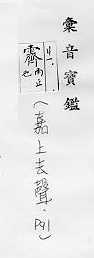 彙音寶鑑
霽雨止也
(嘉上去聲·P91)